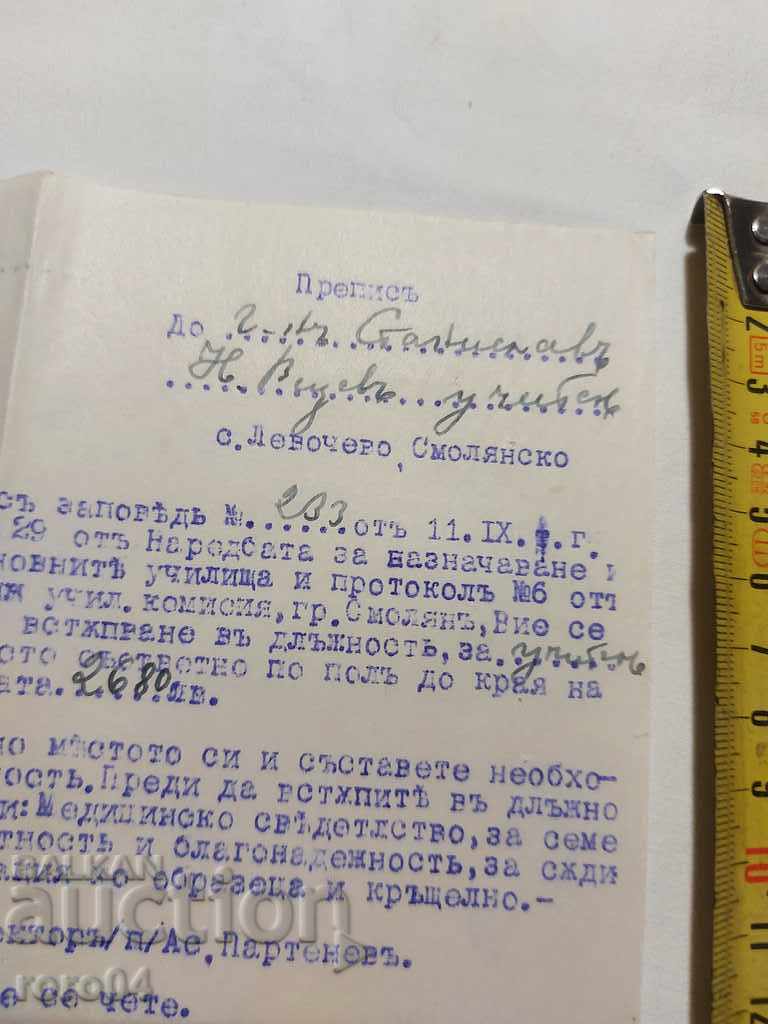 Преписъ
До г-нъ Станиславъ
Н учител
с.Левочево, Смолянско
съ заповѣдь №.233.отъ 11.IX. г.
29 отъ Наредбата за назначаване и
новнитѣ училища и протоколъ №6 отъ
учил. комисия, гр.Смолянъ, Вие се
встѫпване въ длъжность, за учитель
ото съответно по полъ до края на
ата. 2680 лв.
но мѣстото си и съставете необхо-
ность. Преди да встѫпитѣ въ длъжно
и: Медицинско свѣдетлство, за семе
тность и благонадежность, за сѫди
ация по обрезеца и кръщелно.-
екторъ/п/Ас. Партеневъ.
е се чете.
BALKAN
auction
roro04
2
3
4
5
6
7
8
9
10
11
12
5m